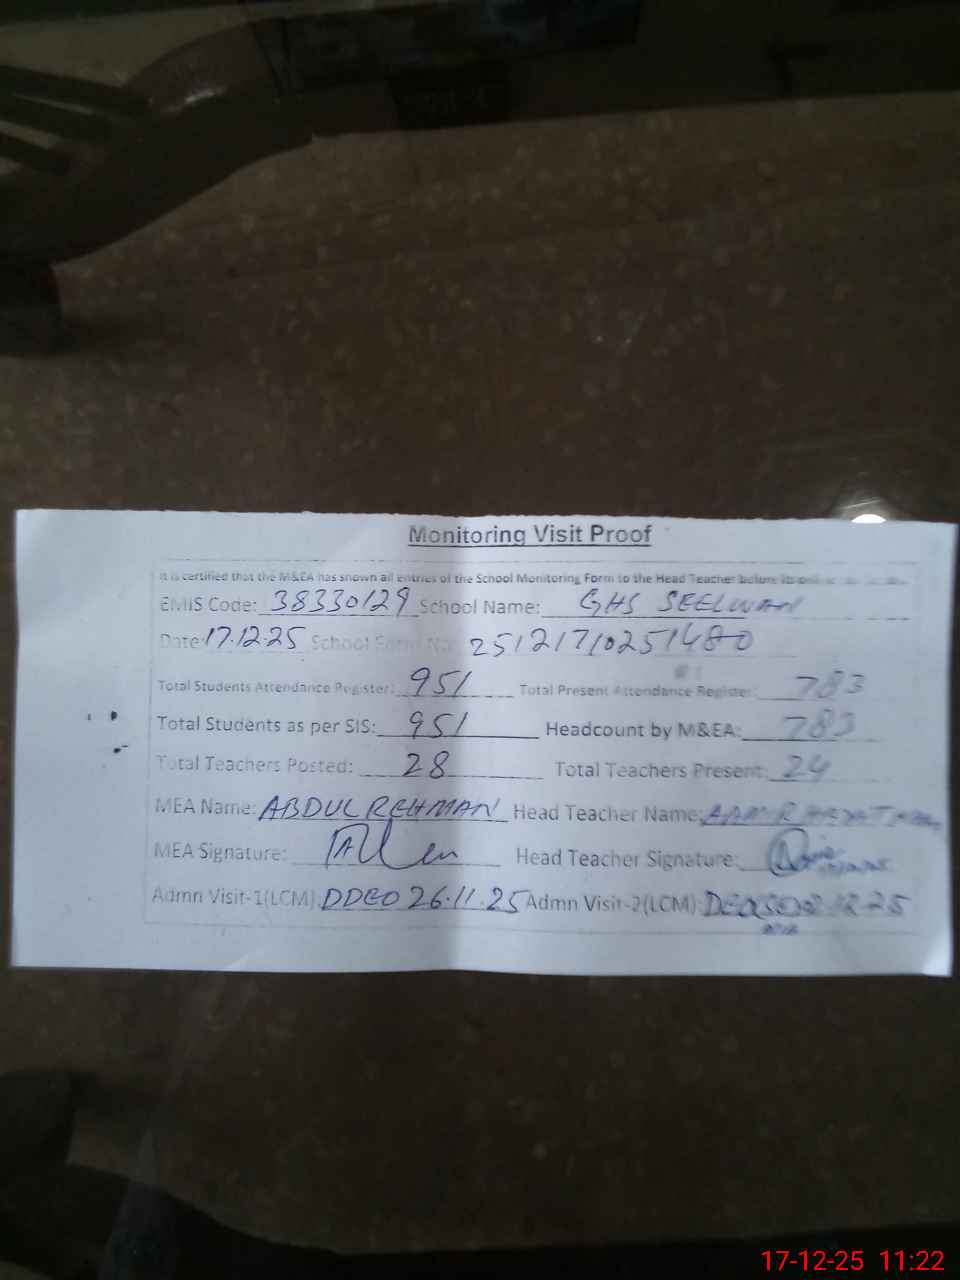 Monitoring Visit Proof
It is certified that the M&EA has shown all entries of the School Monitoring Form to the Head Teacher before its
EMIS Code: 38330129 School Name: GHS SEELWAN
Date: 17.12.25 School Form No: 25121710251480
Total Students Attendance Register: 951 Total Present Attendance Register: 783
Total Students as per SIS: 951 Headcount by M&EA: 783
Total Teachers Posted: 28 Total Teachers Present: 24
MEA Name: ABDUL REHMAN Head Teacher Name: AAMIR
MEA Signature: Head Teacher Signature:
Admn Visit-1(LCM): DDEO 26.11.25 Admn Visit-2(LCM):
17-12-25 11:22